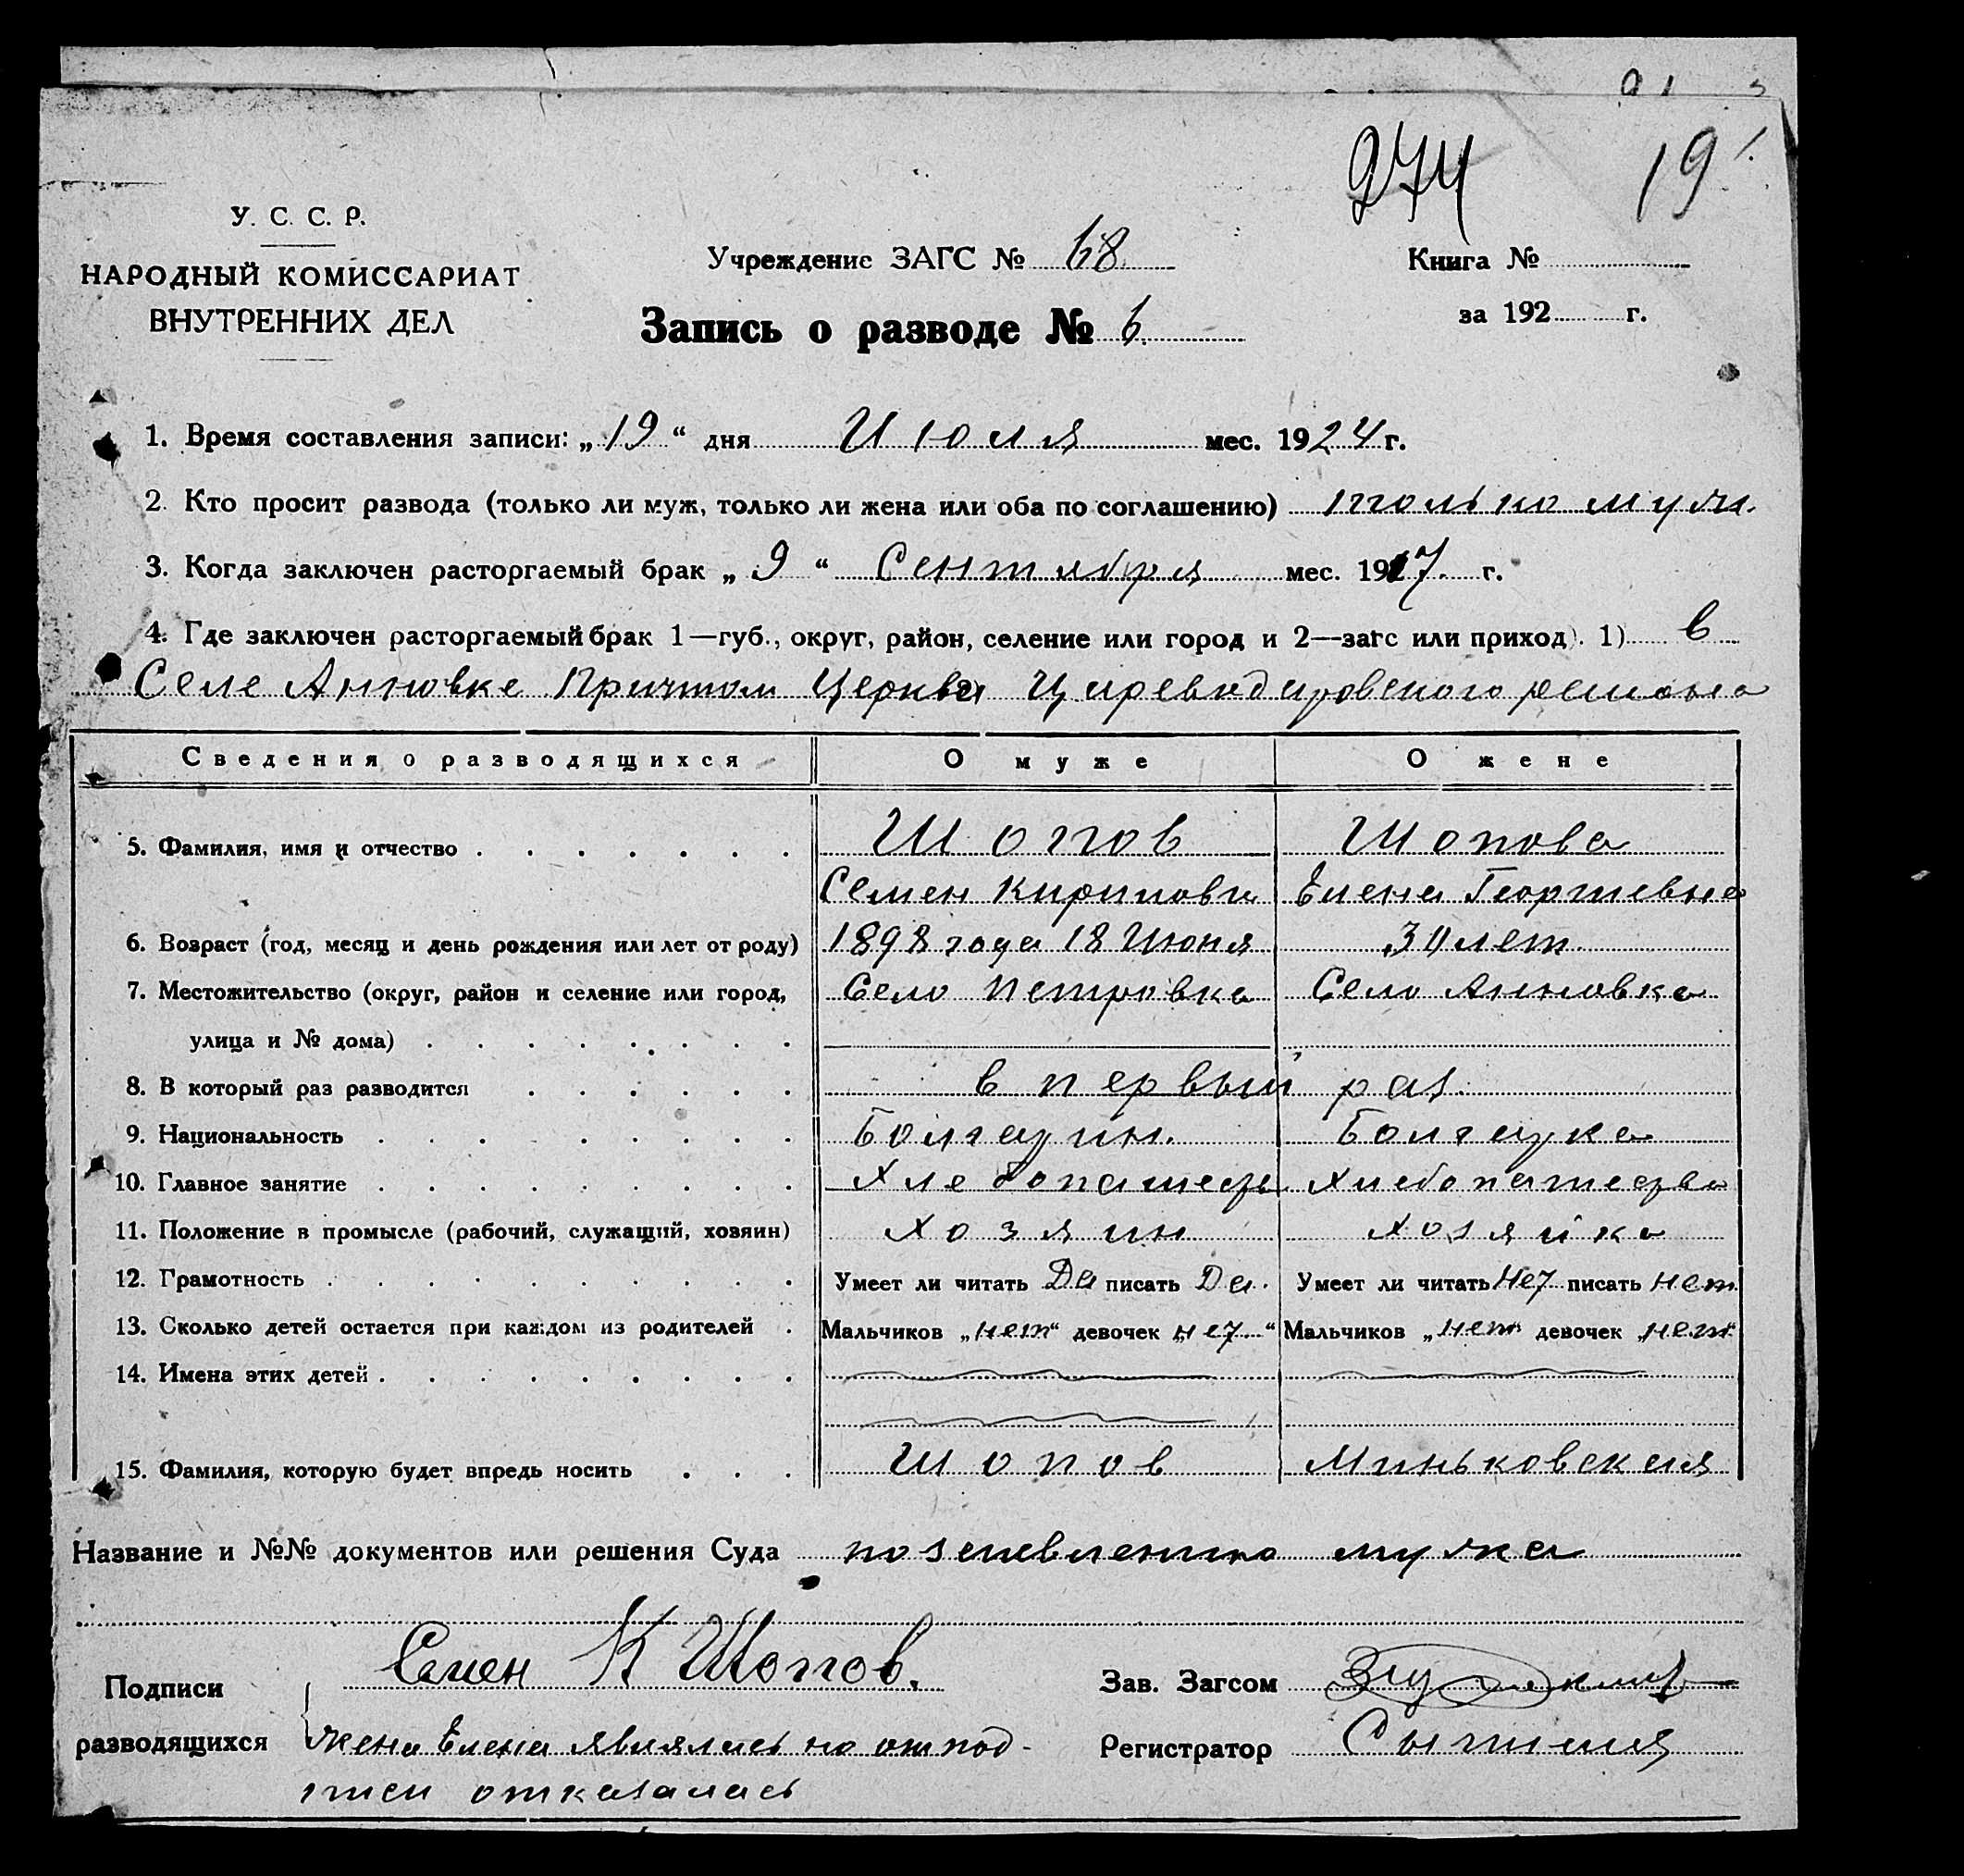 274 19
У. С. С. Р.
НАРОДНЫЙ КОМИССАРИАТ
ВНУТРЕННИХ ДЕЛ
Учреждение ЗАГС № 68
Книга №
за 192 г.
Запись о разводе № 6.
1. Время составления записи: „19“ дня Июля мес. 1924 г.
2. Кто просит развода (только ли муж, только ли жена или оба по соглашению) только муж.
3. Когда заключен расторгаемый брак „9“ Сентября мес. 1917. г.
4. Где заключен расторгаемый брак 1—губ., округ, район, селение или город и 2—загс или приход). 1) в
Селе Анновке Причтом Церкви Цареводаровского района
Сведения о разводящихся О муже О жене
5. Фамилия, имя и отчество Шопов Шопова
Семен Кирилови Елена Георгиевна
6. Возраст (год, месяц и день рождения или лет от роду) 1898 года 18 Июня лет.
7. Местожительство (округ, район и селение или город, Село Петровка Село Анновка
улица и № дома)
8. В который раз разводится в первый раз.
9. Национальность Болгарин. Болгарка
10. Главное занятие
11. Положение в промысле (рабочий, служащий, хозяин) хозяин хозяйка
12. Грамотность Умеет ли читать Да писать Да. Умеет ли читать Нет писать нет
13. Сколько детей остается при каждом из родителей Мальчиков „нет“ девочек „нет“ Мальчиков „нет“ девочек „нет“
14. Имена этих детей
15. Фамилия, которую будет впредь носить Шопов Миньковская
Название и №№ документов или решения Суда по заевлению мужа
Подписи
разводящихся
Семен К Шопов.
жена Елена являлась но от под-
писи отказалась
Зав. Загсом
Регистратор